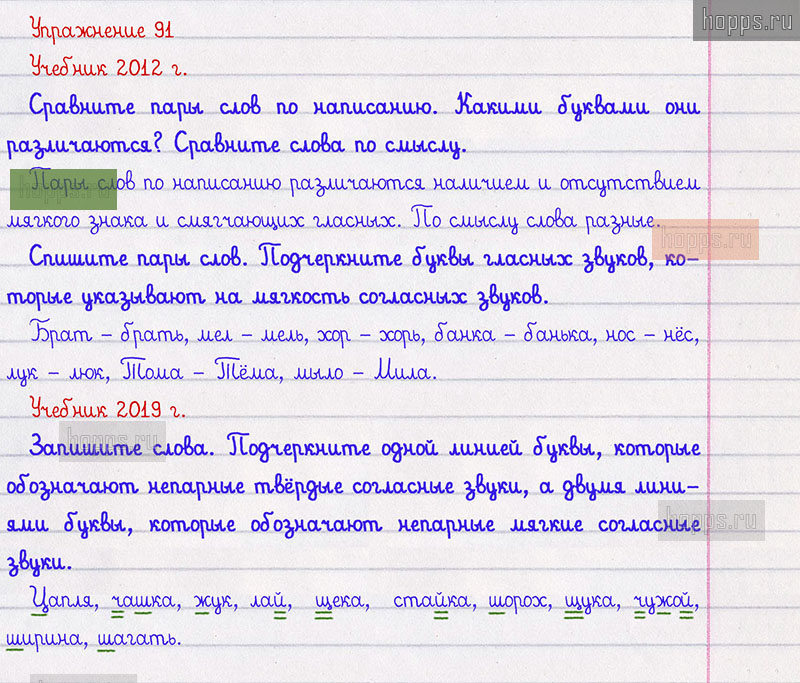 hopps.ru
Упражнение 91
Учебник 2012 г.
Сравните пары слов по написанию. Какими буквами они
различаются? Сравните слова по смыслу.
Пары слов по написанию различаются наличием и отсутствием
мягкого знака и смягчающих гласных. По смыслу слова разные.
hopps.ru
Спишите пары слов. Подчеркните буквы гласных звуков, ко-
торые указывают на мягкость согласных звуков.
Брат – брать, мел – мель, хор – хорь, банка – банька, нос – нёс,
лук – люк, Тома – Тёма, мыло – Мила.
Учебник 2019 г.
hopps.ru
Запишите слова. Подчеркните одной линией буквы, которые
обозначают непарные твёрдые согласные звуки, а двумя лини-
ями буквы, которые обозначают непарные мягкие согласные
hopps.ru
звуки.
Цапля, чашка, жук, лай, щека, стайка, шорох, щука, чужой,
ширина, шагать.